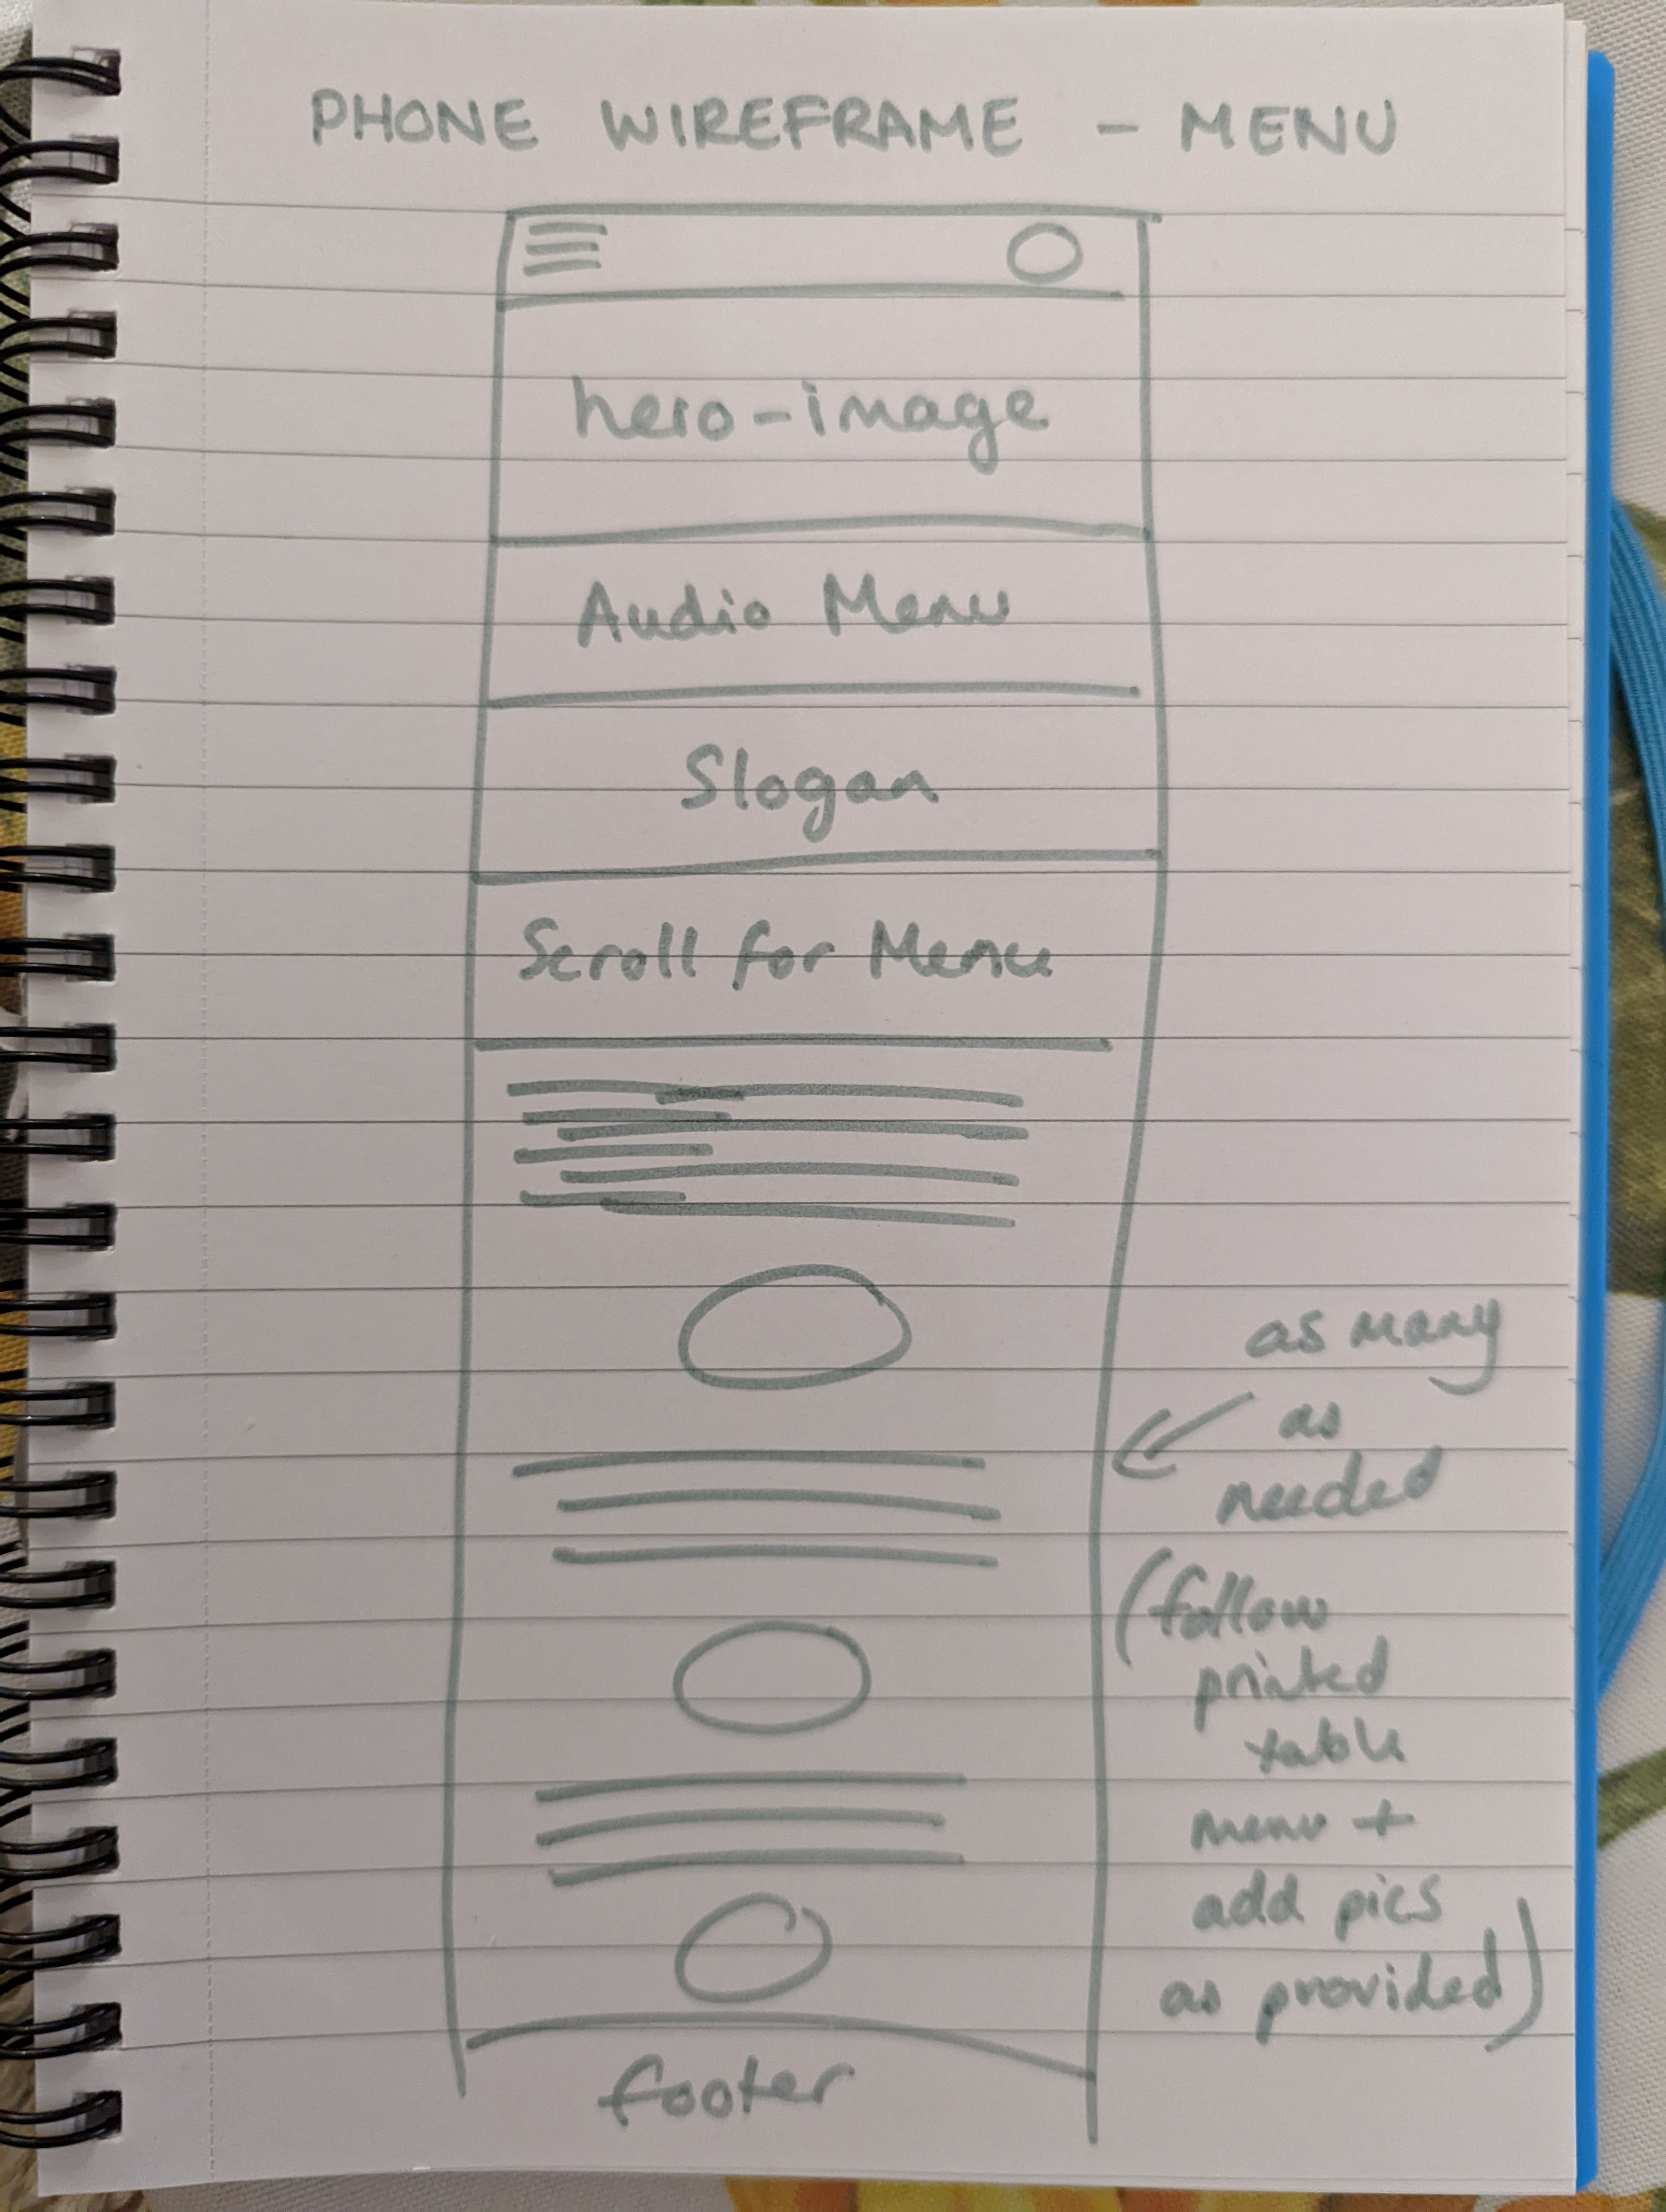 PHONE WIREFRAME - MENU
hero-image
Audio Menu
Slogan
Scroll for Menu
as many
as
needed
(follow
printed
table
menu +
add pics
as provided)
footer